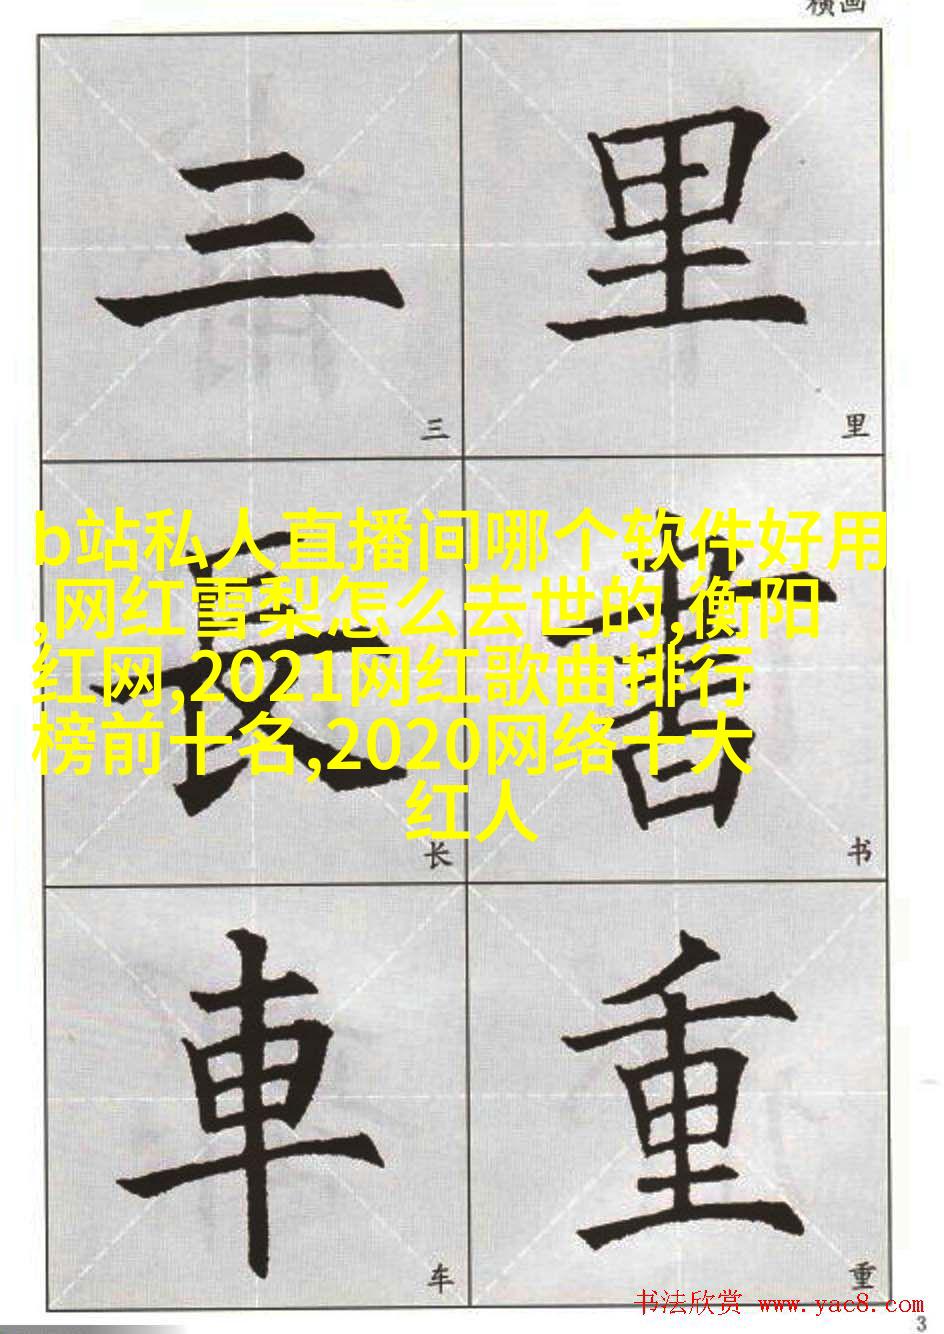 横画
三 里
三 里
b站私人直播间哪个软件好用
,网红雪梨怎么去世的,衡阳
红网,2021网红歌曲排行
榜前十名,2020网络十大
红人
長 書
长 书
車 重
车 重
书法欣赏 www.yac8.com
3